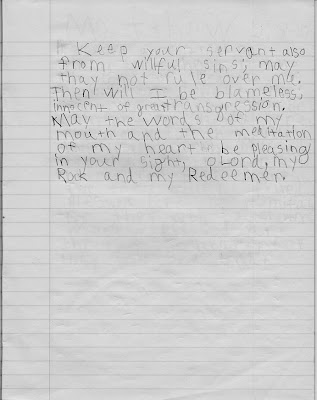 Keep your servant also
from wilful sins; may
thay not rule over me.
Then will I be blameless,
innocent of great transgression.
May the words of my
mouth and the meditation
of my heart be pleasing
in your sight, o Lord, my
Rock and my Redeemer.